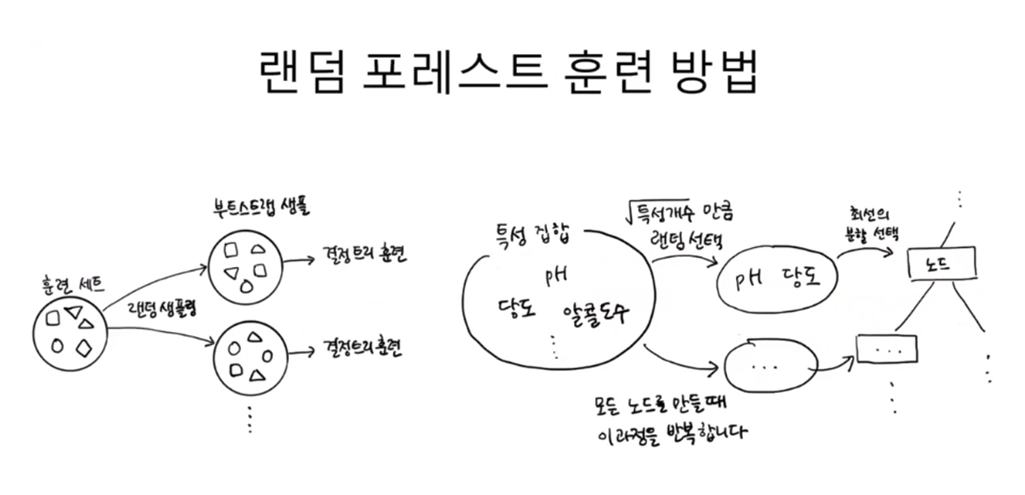 랜덤 포레스트 훈련 방법
부트스트랩 샘플
결정트리 훈련
훈련 세트
랜덤 샘플링
결정트리 훈련
특성 집합
pH
당도 알콜도수
√특성개수 만큼
랜덤 선택
pH 당도
최선의
분할 선택
노드
모든 노드를 만들 때
이 과정을 반복합니다